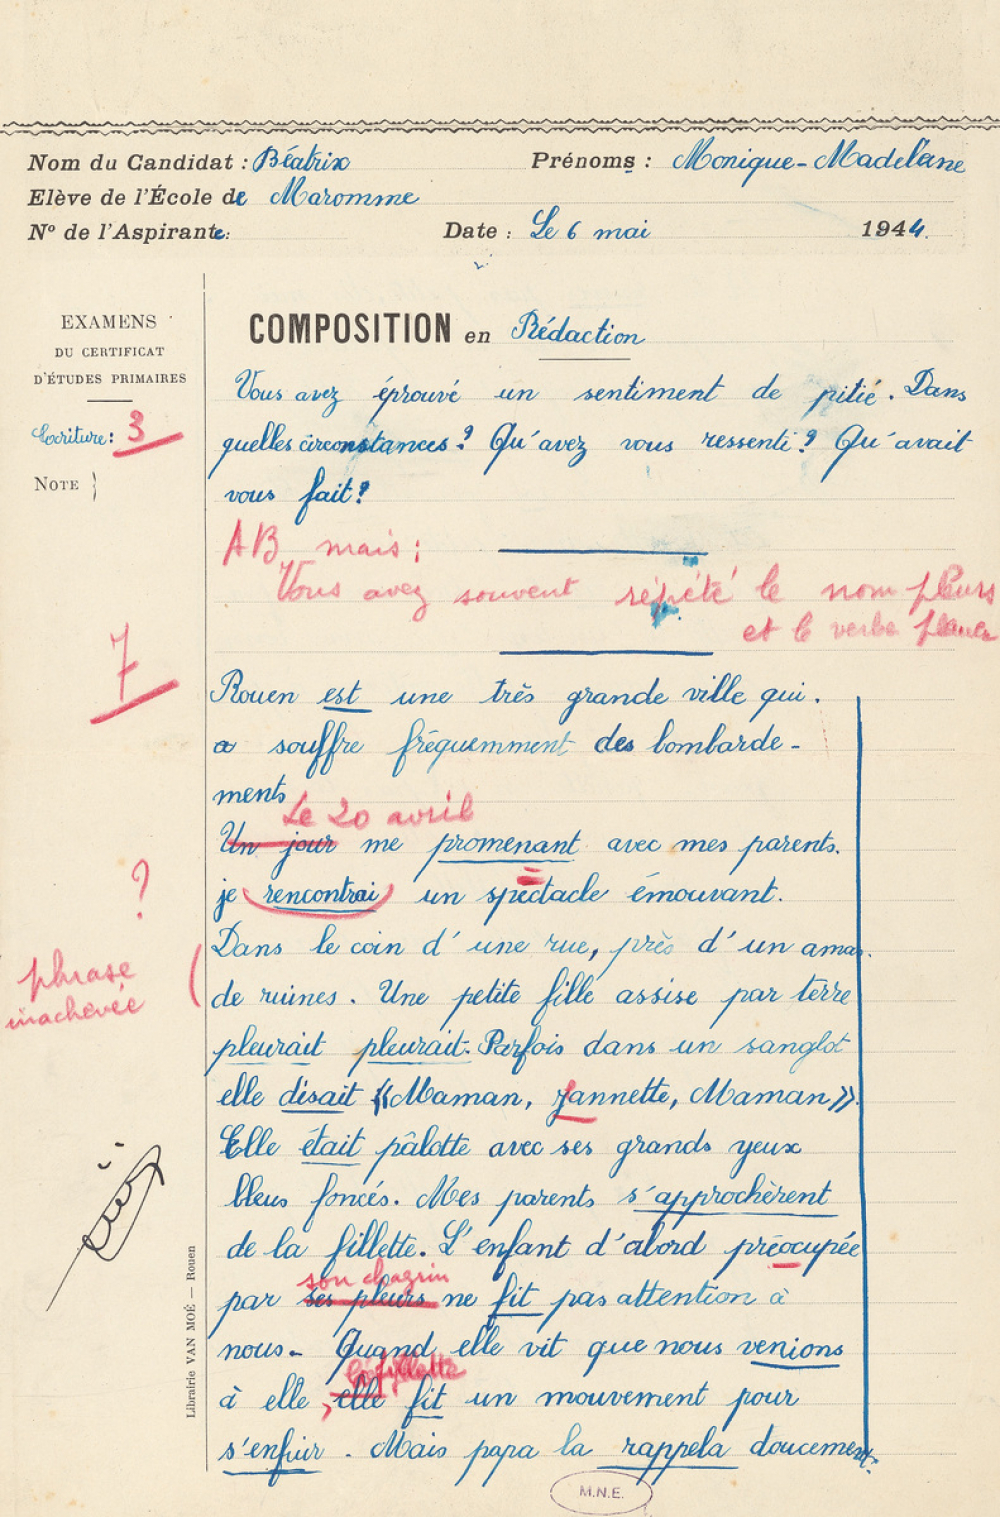 Nom du Candidat : Béatrix Prénoms : Monique-Madeleine
Elève de l'École de Maromme
Nº de l'Aspirante: Date : Le 6 mai 1944.
EXAMENS
DU CERTIFICAT
D'ÉTUDES PRIMAIRES
Ecriture: 3
NOTE }
COMPOSITION en Rédaction
Vous avez éprouvé un sentiment de pitié. Dans
quelles circonstances? Qu'avez vous ressenti? Qu'avait
vous fait?
AB, mais :
Vous avez souvent répété le nom pleurs
et le verbe pleurer
7
Rouen est une très grande ville qui.
a souffre fréquemment des bombarde-
ments
Le 20 avril
Un jour me promenant avec mes parents.
?
je rencontrai un spectacle émouvant.
Dans le coin d'une rue, près d'un amas.
phrase
inachevée
de ruines. Une petite fille assise par terre
pleurait pleurait. Parfois dans un sanglot
elle disait «Maman, Jannette, Maman».
Elle était pâlotte avec ses grands yeux
bleus foncés. Mes parents s'approchèrent
de la fillette. L'enfant d'abord préocupée
son chagrin
par ses pleurs ne fit pas attention à
nous. Quand elle vit que nous venions
la fillette
à elle, elle fit un mouvement pour
s'enfuir. Mais papa la rappela doucement.
Librairie VAN MOÉ — Rouen
M.N.E.